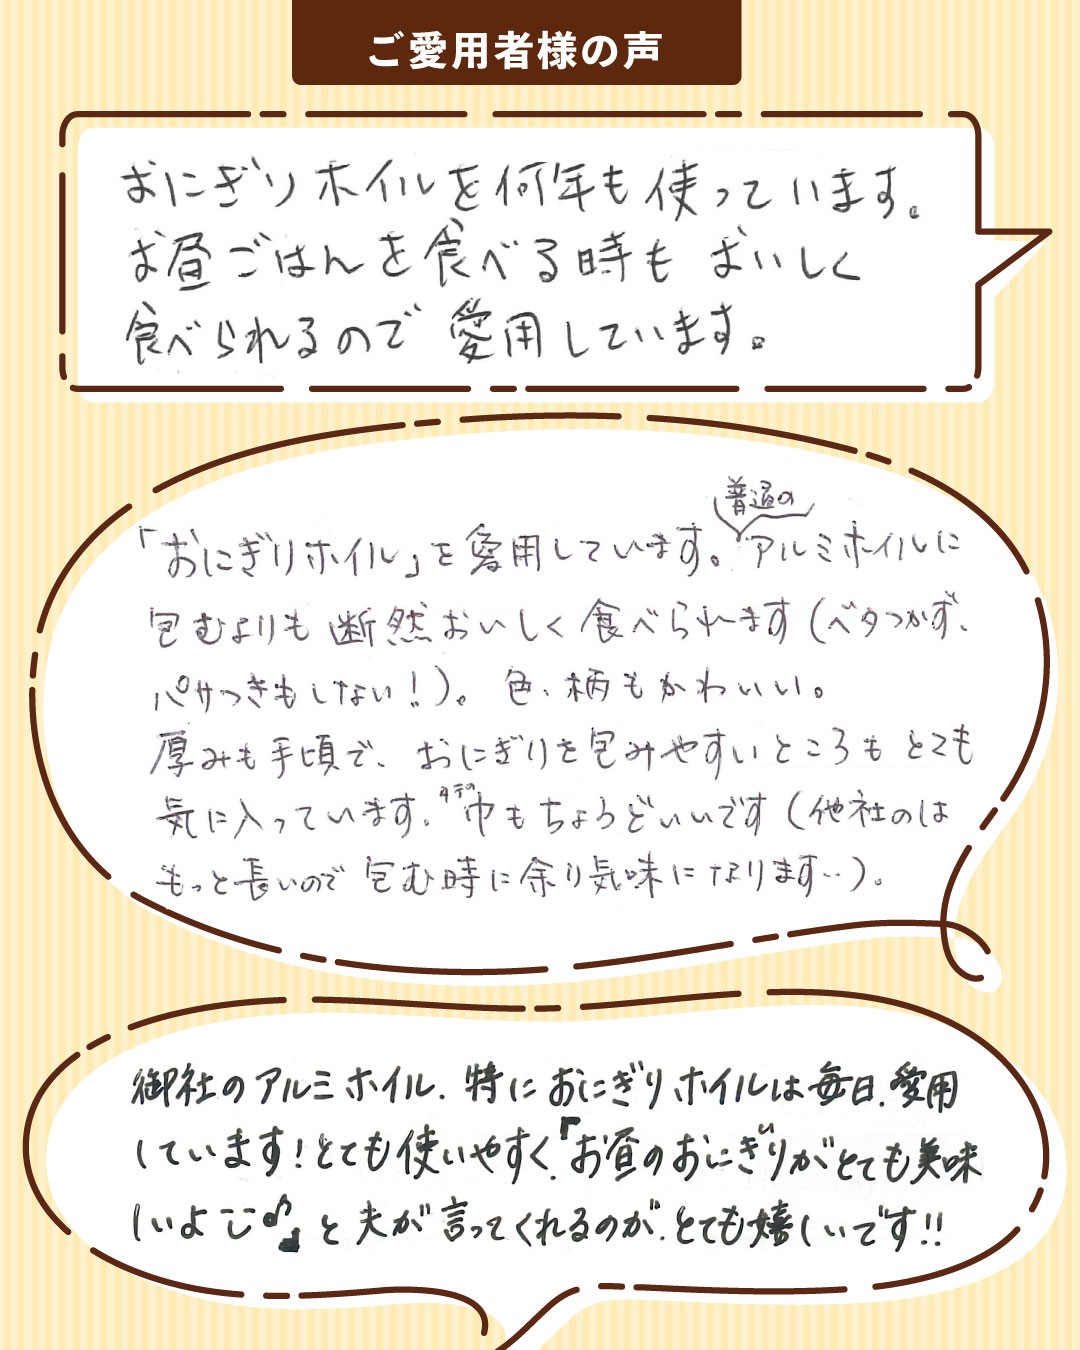 ご愛用者様の声
おにぎりホイルを何年も使っています。
お昼ごはんを食べる時も おいしく
食べられるので 愛用しています。
普通の
「おにぎりホイル」を愛用しています。アルミホイルに
包むよりも 断然おいしく食べられます(ベタつかず、
パサつきもしない!)。色、柄もかわいい。
厚みも手頃で、おにぎりを包みやすいところもとても
気に入っています。タテの巾もちょうどいいです(他社のは
もっと長いので包む時に余り気味になります‥)。
御社のアルミホイル、特におにぎりホイルは毎日、愛用
しています!とても使いやすく、『お昼のおにぎりがとても美味
しいよ♪』と夫が言ってくれるのが、とても嬉しいです!!